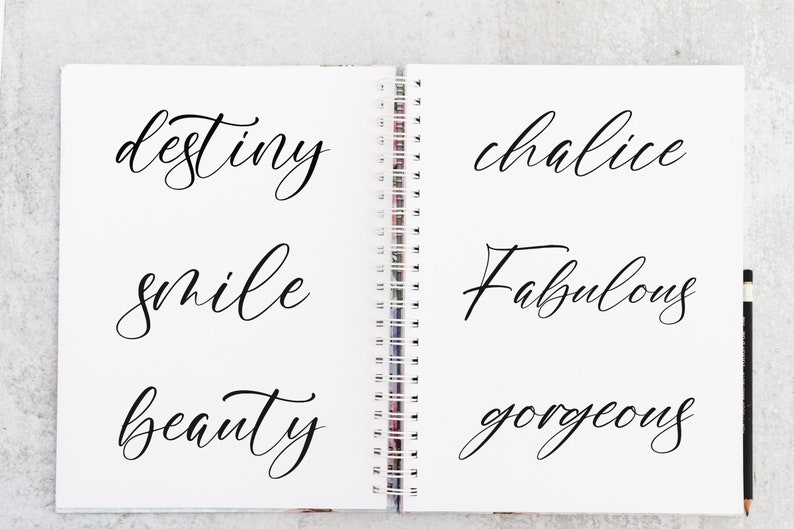 destiny
smile
beauty
chalice
Fabulous
gorgeous